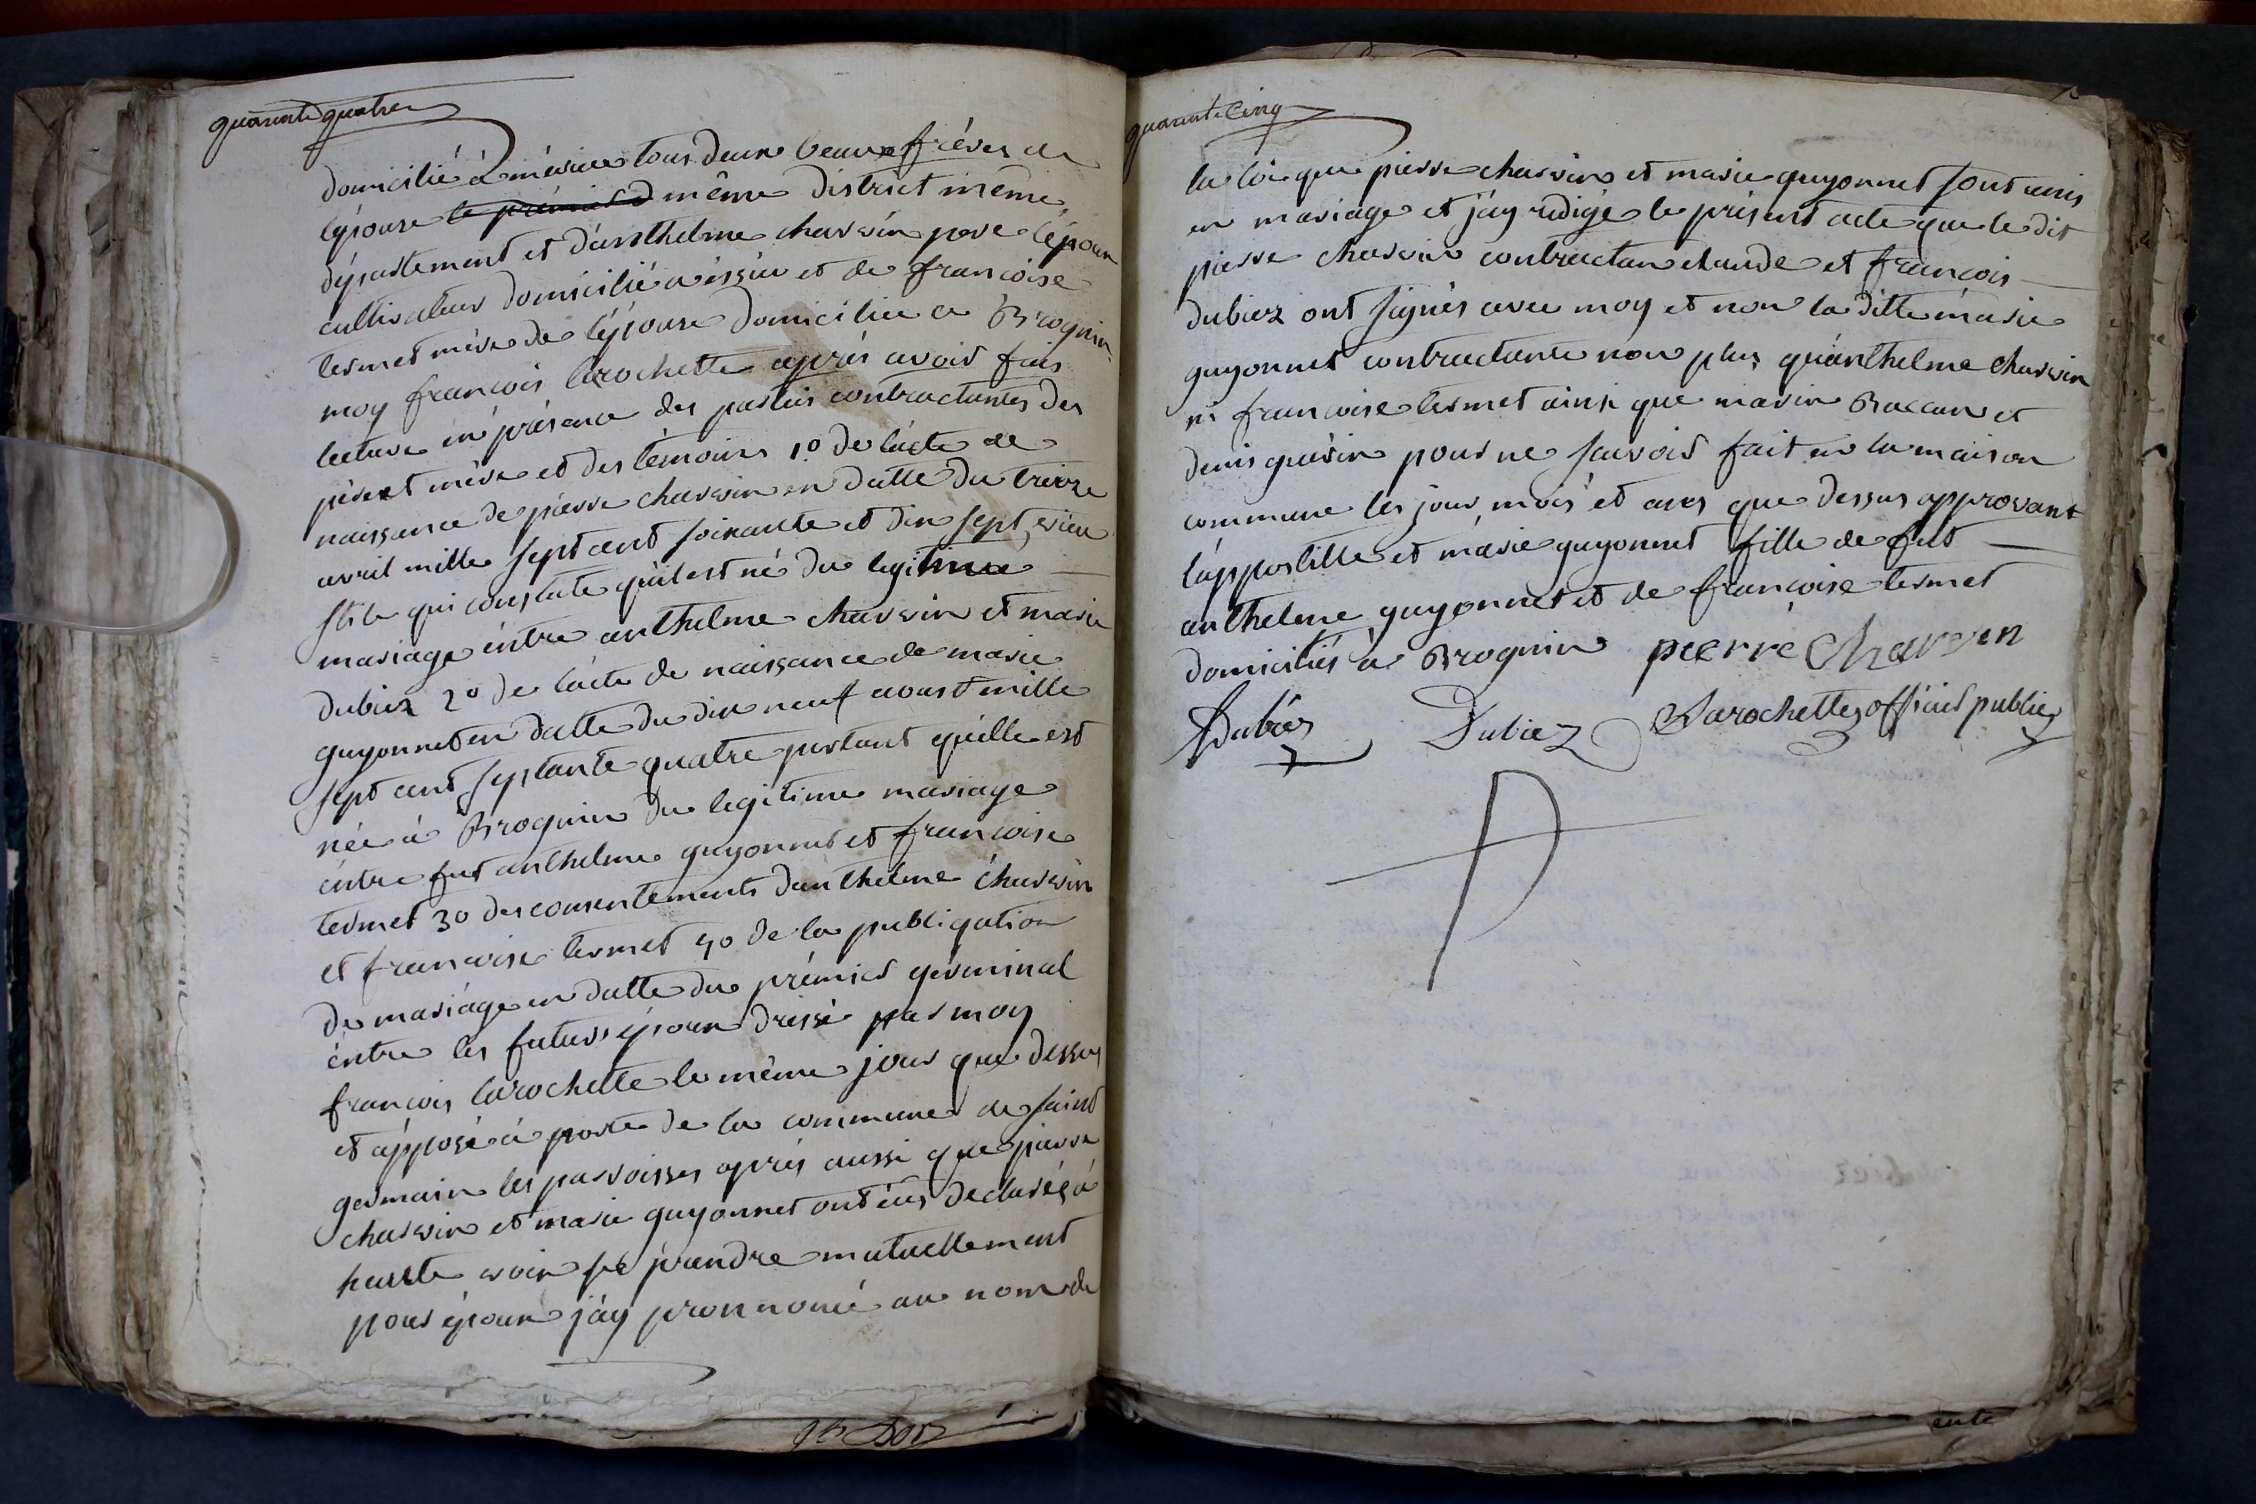 quarante quatre
domicilié à mérieu tous deux beaux fréres de
l'épouse le prémier d même district même
département et d'anthelme charvin pere l'époux
cultivateur domicilié a éssieu et de francoise
termet mére de l'épouse domiciliée a Brognin
moy francois larochette aprés avoir fais
lecture én présence des parties contractantes des
pére et mére et des témoins 1o de l'acte de
naissance de piérre charvin en datte du treize
avril mille sept cent soixante et dix sept vieu
stile qui constate qu'il est né du legitime
mariage éntre anthelme charvin et marie
dubiez 2o de l'acte de naissance de marie
guyonnet en datte du dix neuf aoust mille
sept cent septante quatre portant qu'élle est
née à Brognin du legitime mariage
éntre fut anthelme guyonnet et francoise
termet 3o des consentements d'anthelme charvin
et francoise termet 4o de la publigation
de mariage en datte du prémier gérminal
éntre les futurs époux dréssé par moy
francois larochette le même jour que dessus
et apposé à porte de la commune de saint
germain les parroisses aprés aussi que pierre
charvin et marie guyonnet ont éus declarés à
haute voix se prendre mutuellement
pour époux j'ay pronnoncé au nom de
quarante Cinq
la loi que pierre charvin et marie guyonnet sont unis
en mariage et j'ay redigé le présent acte que le dit
pierre charvin contractan claude et francois
dubiez ont signés avec moy et non la ditte marie
guyonnet contractante non plus qu'anthelme charvin
ni francoise termet ainsi que marin Baccan et
denis guérin pour ne scavoir fait en la maison
commune les jour mois et ans que dessus approvant
l'appostille et marie guyonnet fille de fut
anthelme guyonnet et de francoise termet
domiciliés à Brognin pierre Charven
Dubiez Dubiez Larochette officier public
ente